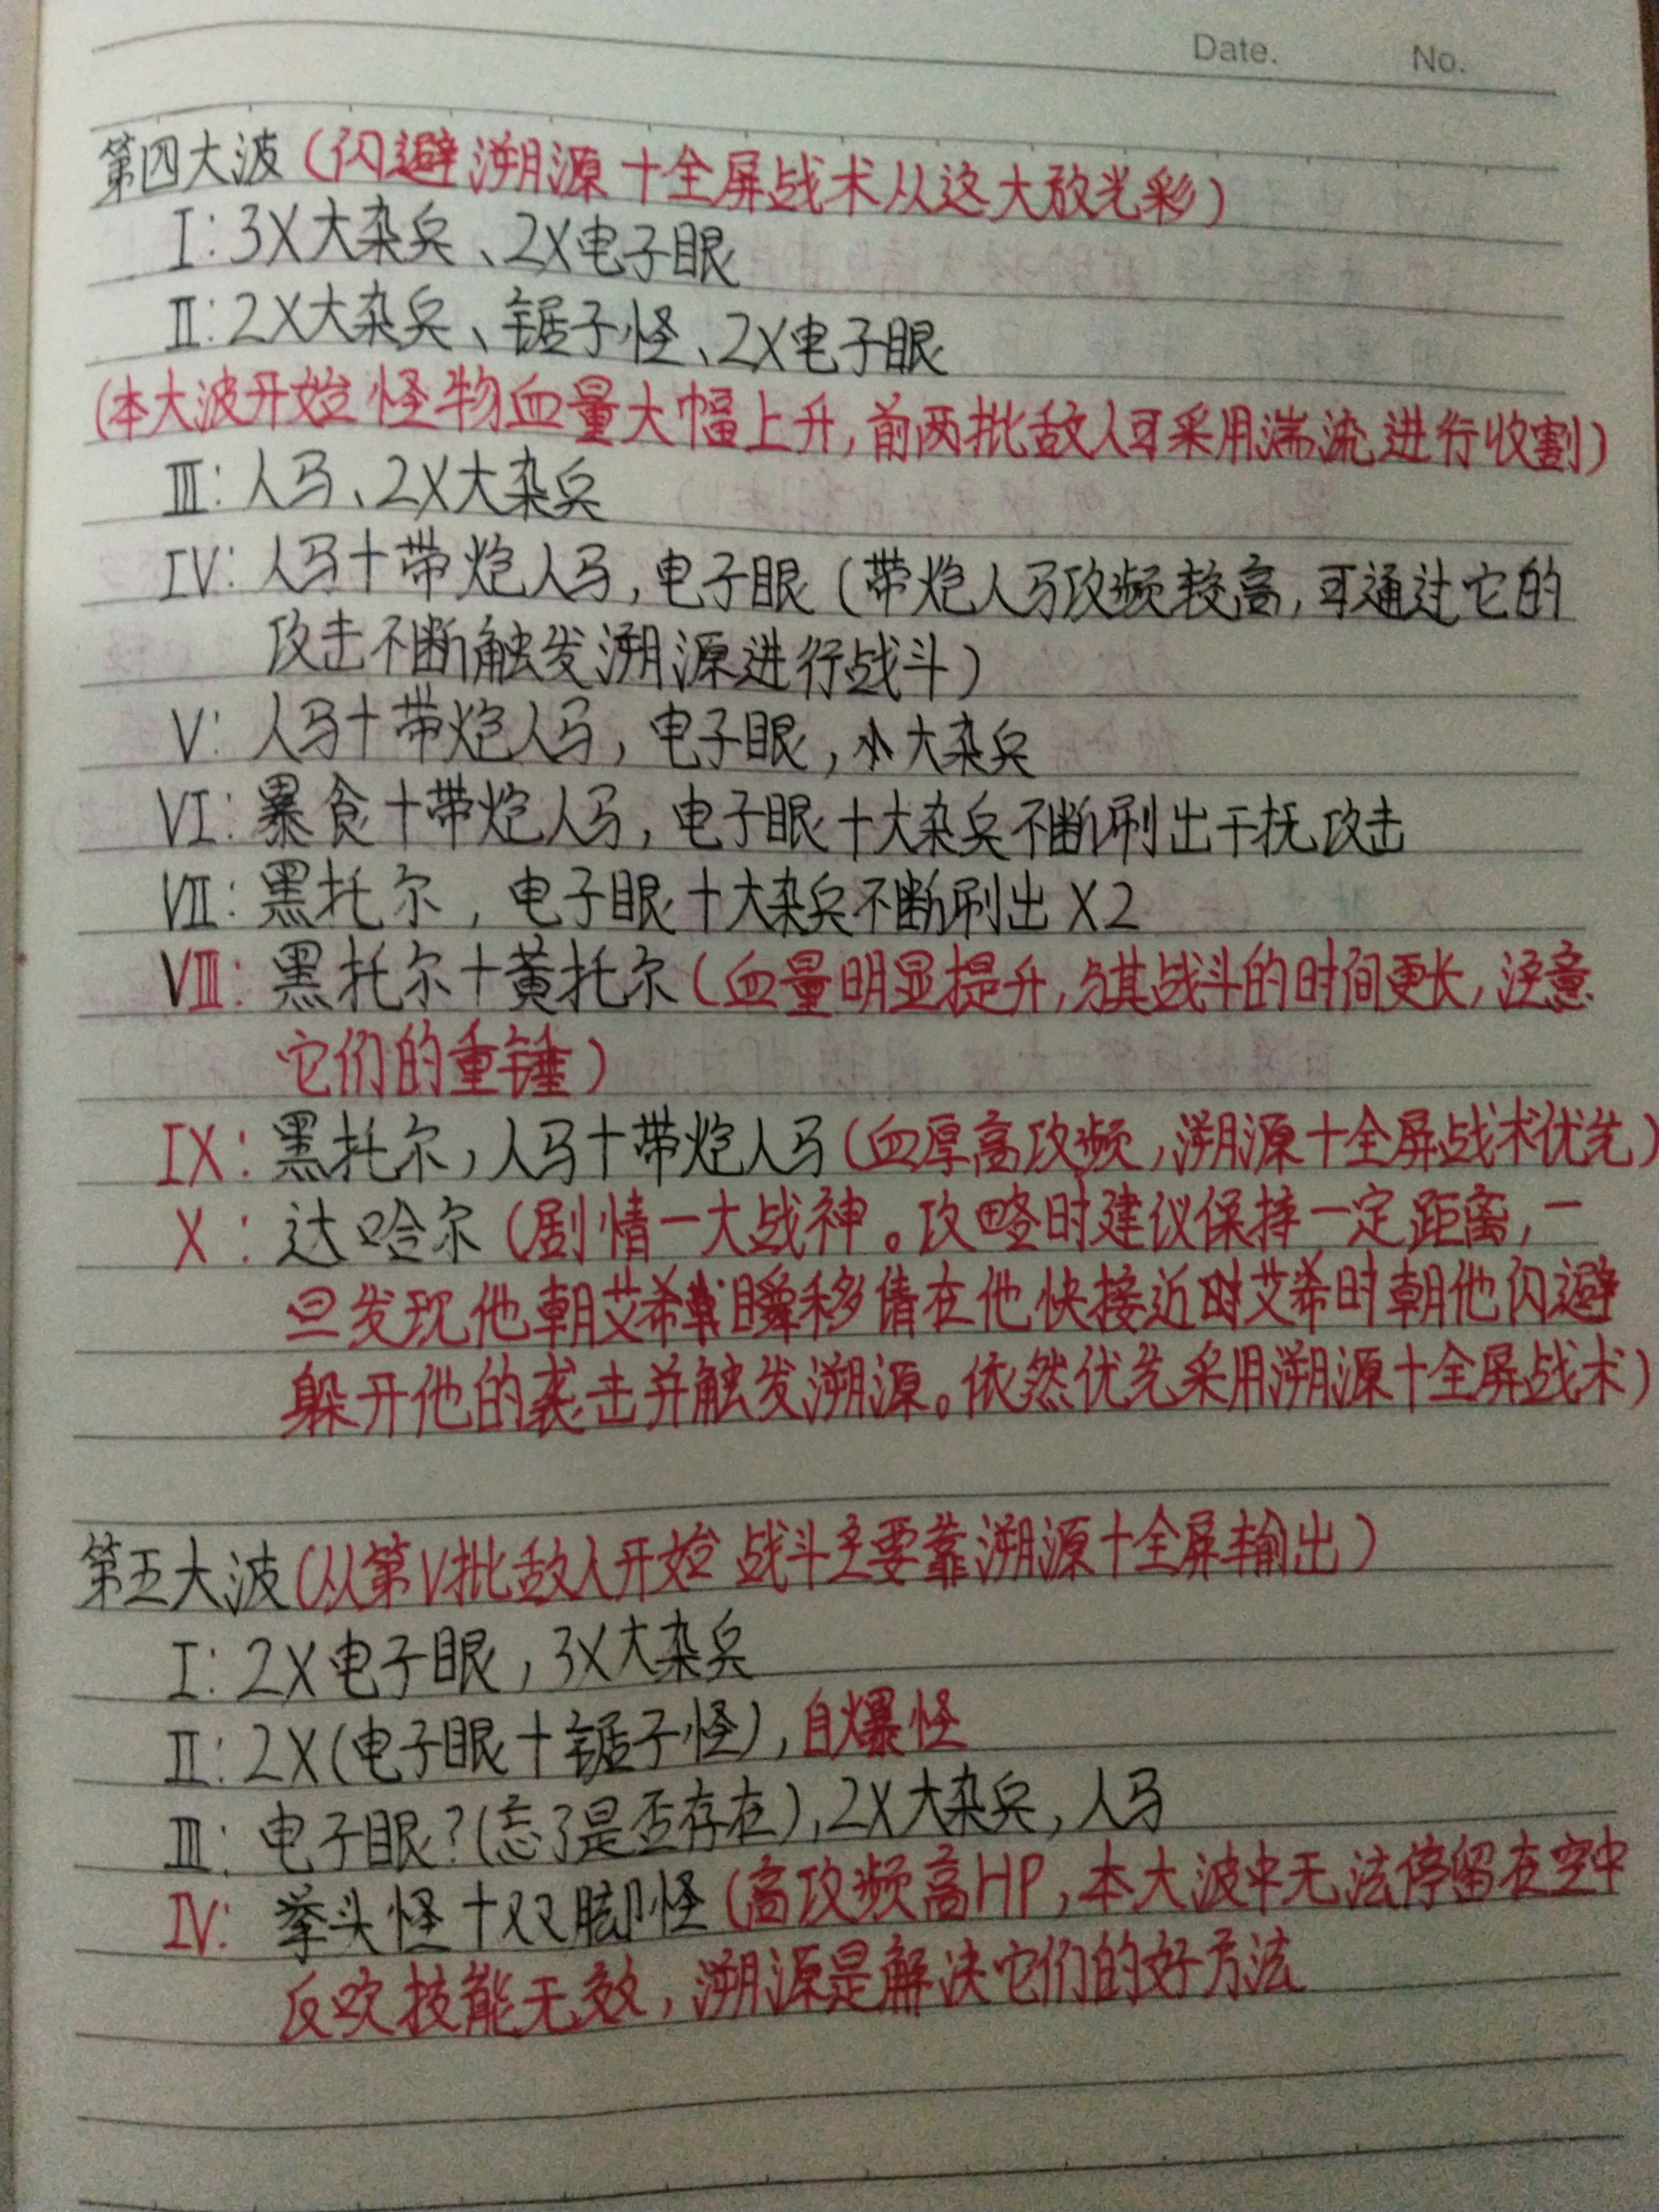 Date. No.
第四大波(闪避溯源+全屏战术从这大放光彩)
I:3X大杂兵、2X电子眼
II:2X大杂兵、锯子怪、2X电子眼
(本大波开始怪物血量大幅上升,前两批敌人可采用湍流进行收割)
III:人马、2X大杂兵
IV:人马+带炮人马,电子眼(带炮人马攻频较高,可通过它的
攻击不断触发溯源进行战斗)
V:人马+带炮人马,电子眼,大杂兵
VI:暴食+带炮人马,电子眼+大杂兵不断刷出干扰攻击
VII:黑托尔,电子眼+大杂兵不断刷出X2
VIII:黑托尔+黄托尔(血量明显提升,与其战斗的时间更长,注意
它们的重锤)
IX:黑托尔,人马+带炮人马(血厚高攻频,溯源+全屏战术优先)
X:达哈尔(剧情一大战神。攻略时建议保持一定距离,一
旦发现他朝艾希瞬移请在他快接近艾希时朝他闪避
躲开他的袭击并触发溯源。依然优先采用溯源+全屏战术)
第五大波(从第V批敌人开始战斗主要靠溯源+全屏输出)
I:2X电子眼,3X大杂兵
II:2X(电子眼+锯子怪),自爆怪
III:电子眼?(忘了是否存在),2X大杂兵,人马
IV:拳头怪+双脚怪(高攻频高HP,本大波中无法停留在空中
反欢技能无效,溯源是解决它们的好方法